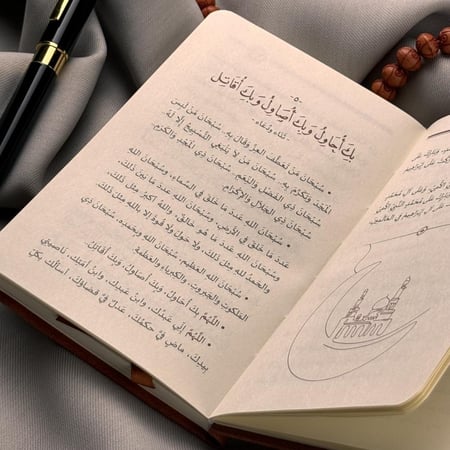 -٥-
بك أحاول وبك أصاول وبك أقاتل
- ثناء ودعاء -
• سبحان مَن تعطف العز وقال به، سبحان مَن لبس
المجد وتكرّم به، سبحان مَن لا ينبغي التسبيح إلا له،
سبحان ذي الفضل والنعم، سبحان ذي المجد والكرم،
سبحان ذي الجلال والإكرام.
• سبحان الله عدد ما خلق في السماء، وسبحان الله
عدد ما خلق في الأرض، وسبحان الله عدد ما بين ذلك،
وسبحان الله عدد ما هو خالق، والله أكبر مثل ذلك،
والحمد لله مثل ذلك، ولا حول ولا قوة إلا بالله مثل ذلك.
• سبحان الله العظيم، سبحان الله وبحمده، سبحان ذي
الملكوت والجبروت، والكبرياء والعظمة.
• اللهم بك أحاول، وبك أصاول، وبك أقاتل.
• اللهم إني عبدك، وابن عبدك، وابن أمتك، ناصيتي
بيدك، ماض في حكمك، عدل في قضاؤك، أسألك بكل